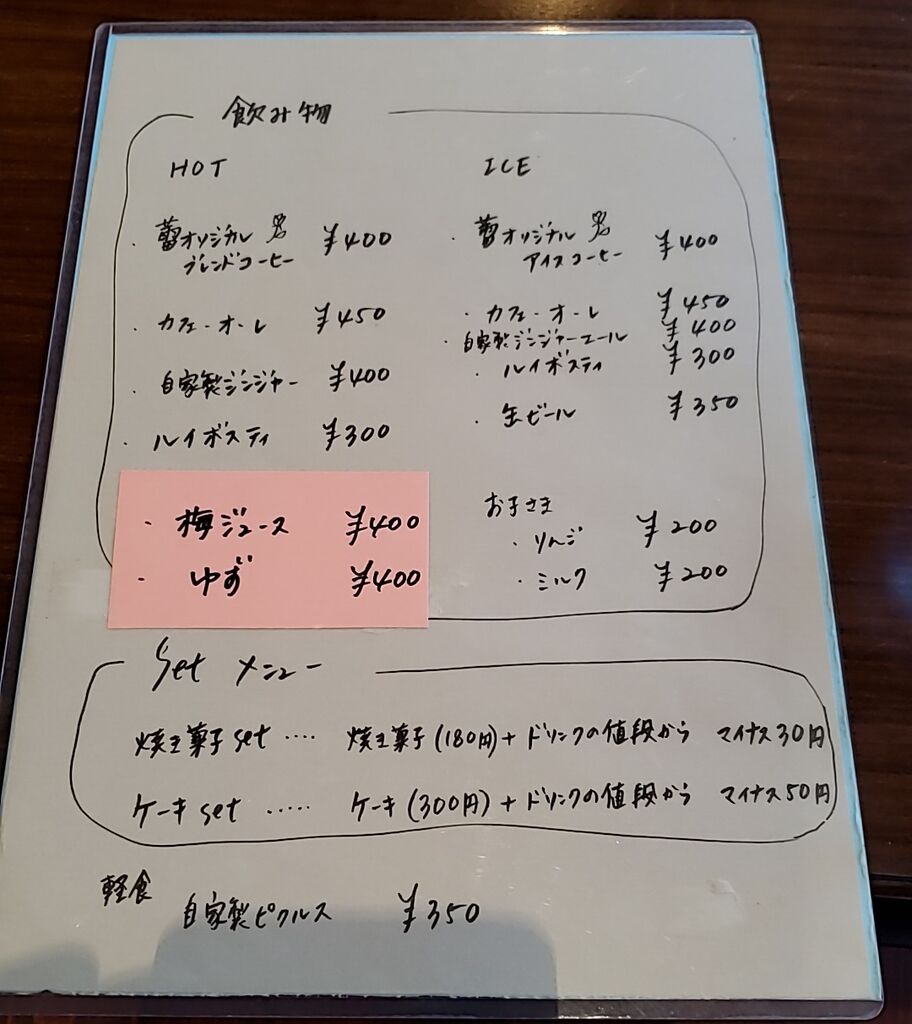 飲み物
HOT
・蕾オリジナル
ブレンドコーヒー ¥400
・カフェ・オ・レ ¥450
・自家製ジンジャー ¥400
・ルイボスティ ¥300
・梅ジュース ¥400
・ゆず ¥400
ICE
・蕾オリジナル
アイスコーヒー ¥400
・カフェ・オ・レ ¥450
・自家製ジンジャーエール ¥400
・ルイボスティ ¥300
・缶ビール ¥350
お子さま
・りんご ¥200
・ミルク ¥200
Set メニュー
焼き菓子 set ‥‥ 焼き菓子(180円)+ドリンクの値段から マイナス30円
ケーキ set ‥‥‥ ケーキ(300円)+ドリンクの値段から マイナス50円
軽食
自家製ピクルス ¥350